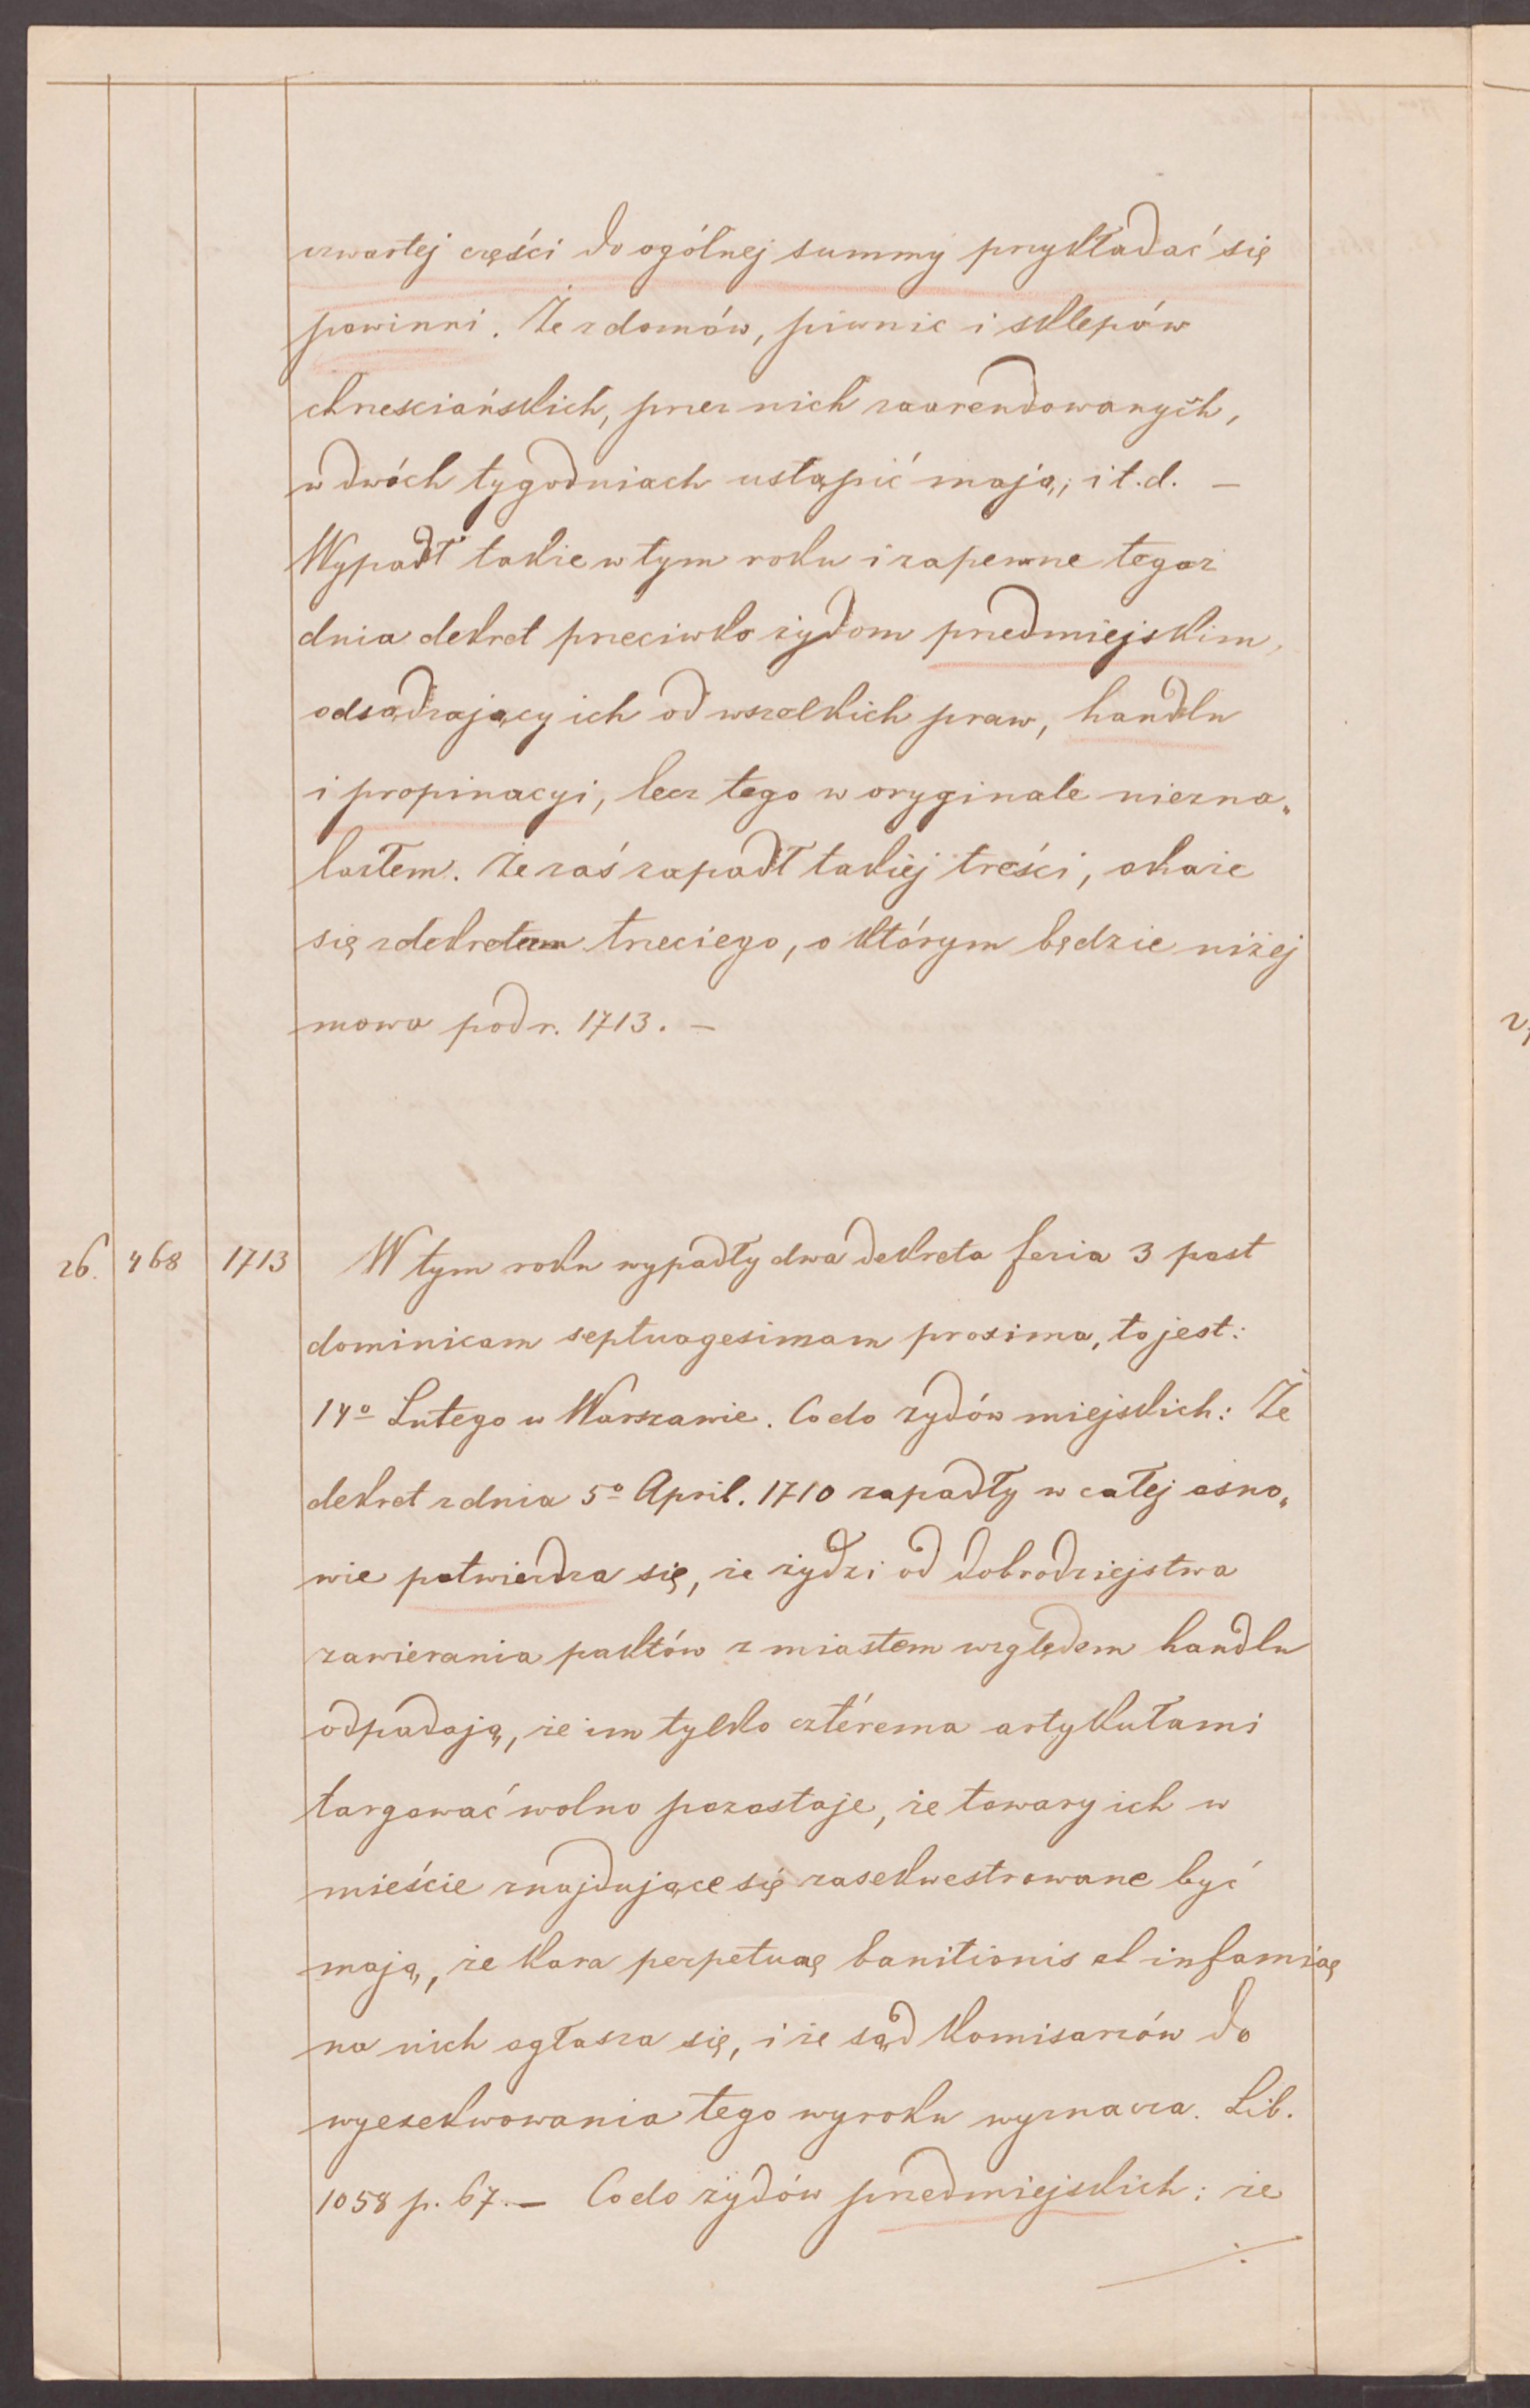 czwartej części do ogólnej summy przykładać się
powinni. Że z domów, piwnic i sklepów
chrzesciańskich, przez nich zaarendowanych,
w dwóch tygodniach ustąpić mają; i t. d. —
Wypadł także w tym roku i zapewne tegoż
dnia dekret przeciwko żydom przedmiejskim,
odsądzający ich od wszelkich praw, handlu
i propinacyi, lecz tego w oryginale niezna„
lazłem. Że zaś zapadł takiej treści, okaże
się z dekretu trzeciego, o którym będzie niżej
mowa pod r. 1713. —
26. 468 1713 W tym roku wypadły dwa dekreta feria 3 post
dominicam septuagesimam proxima, to jest:
14º Lutego w Warszawie. Co do żydów miejskich: Że
dekret z dnia 5º April. 1710 zapadły w całej osno„
wie potwierdza się, że żydzi od dobrodziejstwa
zawierania paktów z miastem względem handlu
odpadają, że im tylko cztérema artykułami
targować wolno pozostaje, że towary ich w
mieście znajdujące się zasekwestrowane być
mają, że kara perpetuę banitionis et infamię
na nich ogłasza się, i że sąd Komisarzów do
wyexekwowania tego wyroku wyznacza. Lib.
1058 p. 67. — Co do żydów przedmiejskich: że
./.